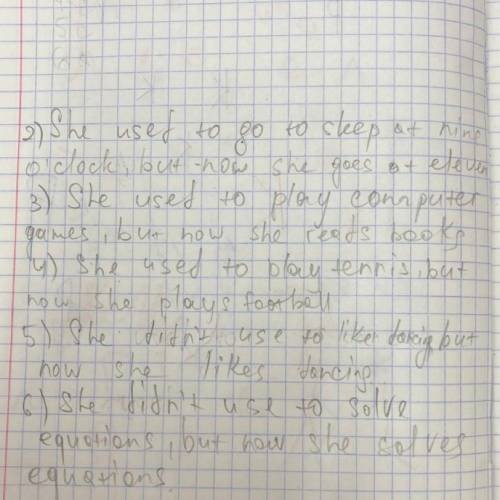 2) She used to go to sleep at nine
o'clock, but now she goes at eleven
3) She used to play computer
games, but now she reads books
4) She used to play tennis, but
now she plays football
5) She didn't use to like dancing, but
now she likes dancing
6) She didn't use to solve
equations, but now she solves
equations.